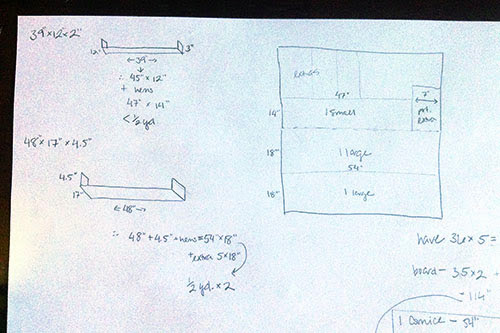 39"x12"x2"
12"
3"
←39"→
∴ 45"x12"
+ hems
47" x 14"
<1/2 yd.
48"x 17" x 4.5"
4.5"
17"
←48"→
∴ 48"+4.5"+hems=54"x18"
+extra 5x18"
1/2 yd. x 2
extras
47"
7"
14"
1 small
extra
18"
1 large
54"
18"
1 large
have 36 x 5 =
board - 35x2 +
= 114
1 Cornice - 54"